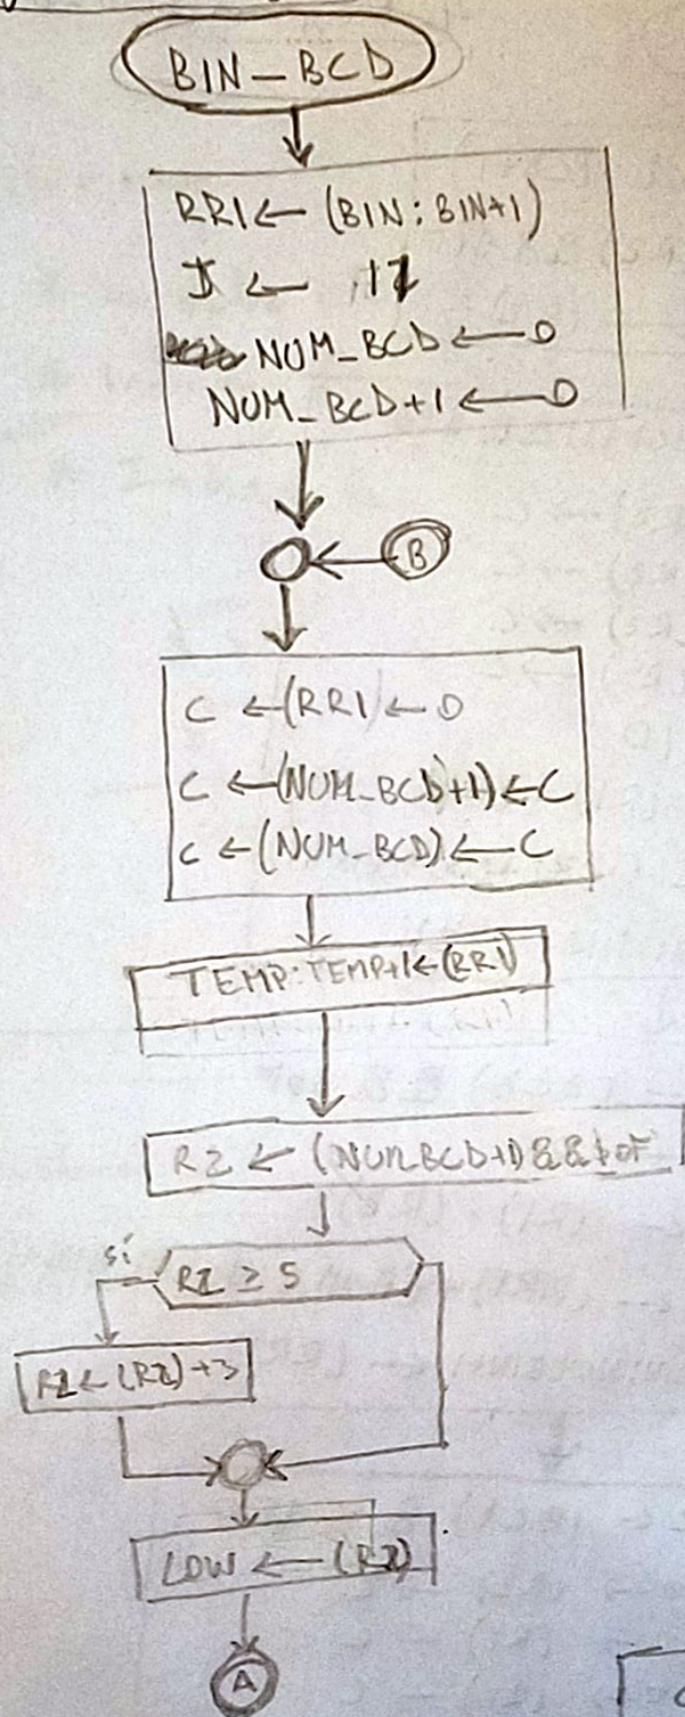 BIN_BCD
RR1 ← (BIN:BIN+1)
J ← 11
NUM_BCD ← 0
NUM_BCD+1 ← 0
B
C ← (RR1) ← 0
C ← (NUM_BCD+1) ← C
C ← (NUM_BCD) ← C
TEMP:TEMP+1 ← (RR1)
R2 ← (NUM_BCD+1) && $0F
sí
R2 ≥ 5
R2 ← (R2)+3
LOW ← (R2)
A